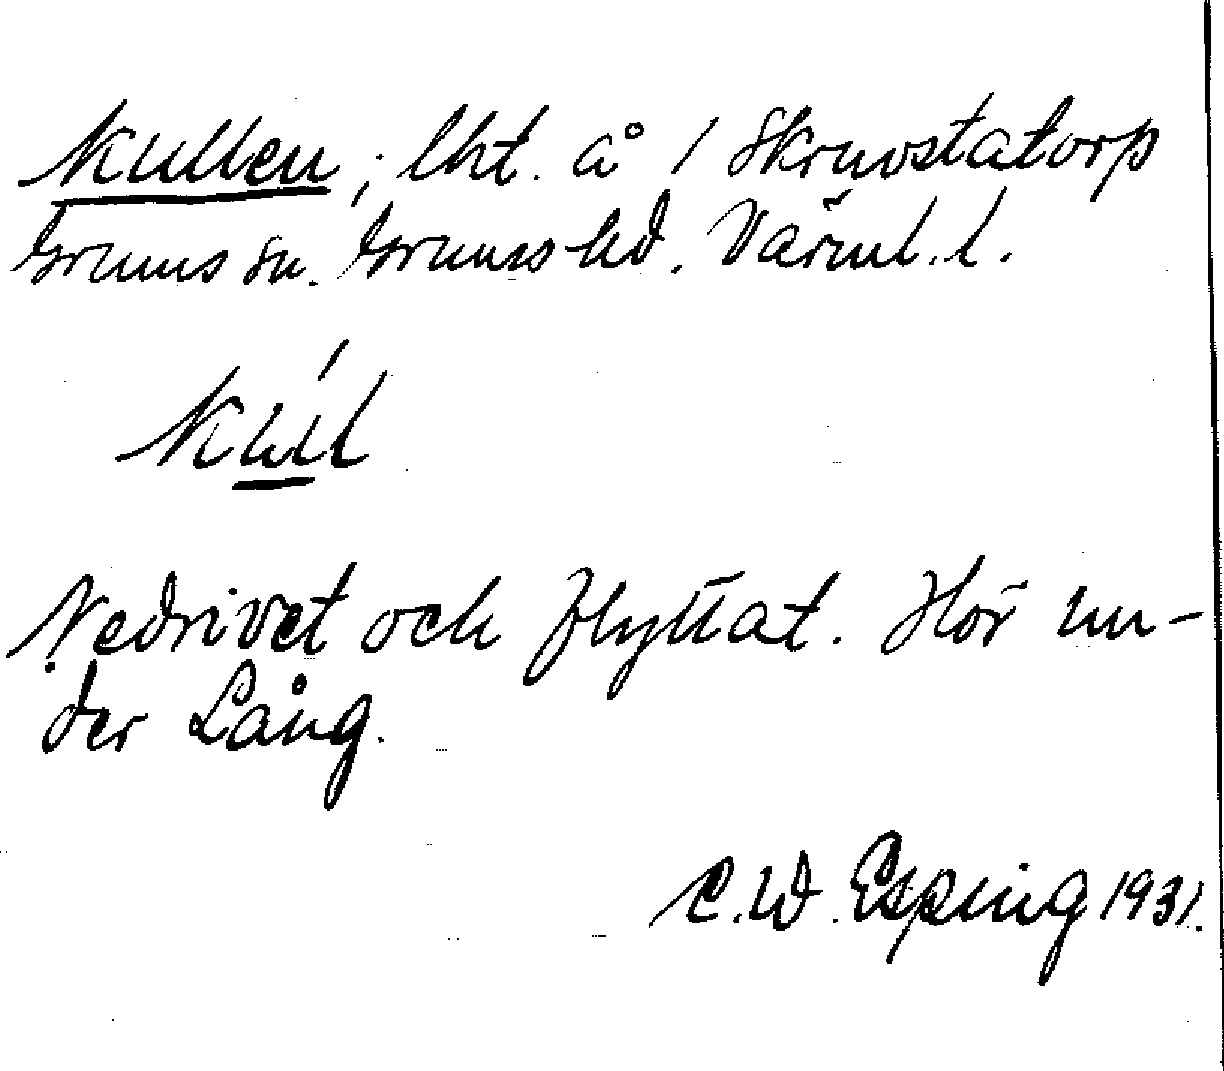 Kullen; lht. å 1 Skruvstatorp
Grums sn. Grums hd. Värml. l.
Kúl
Nedrivet och flyttat. Hör un-
der Lång.
C.W. Esping 1931.